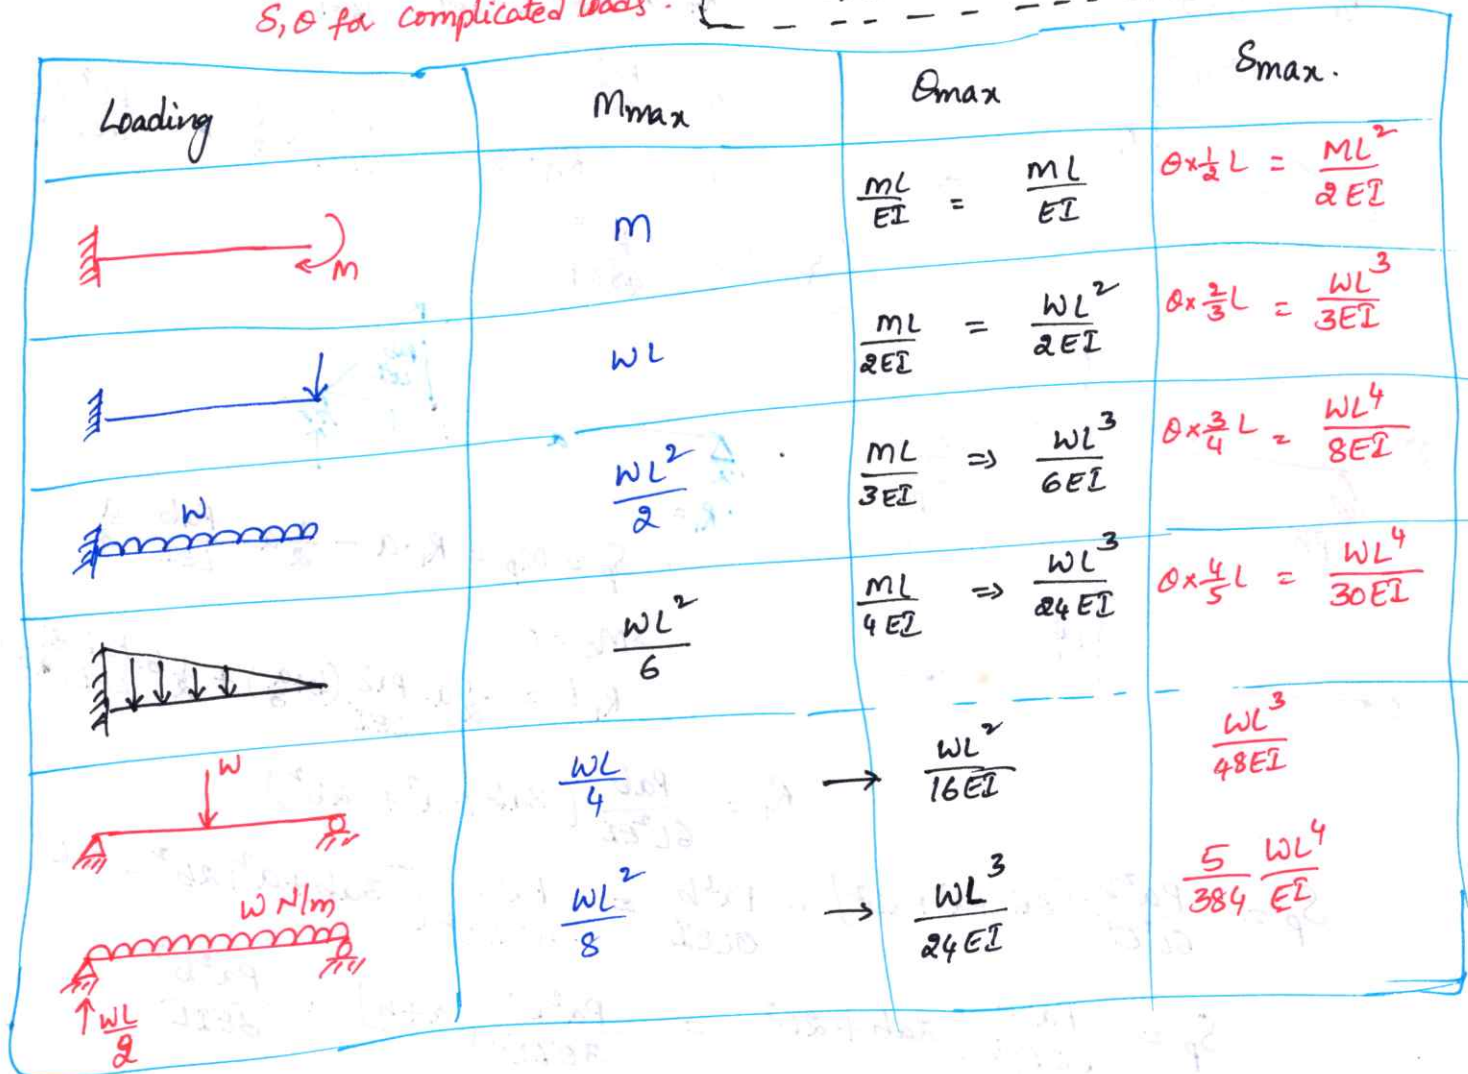 δ, θ for complicated loads.
Loading Mmax θmax δmax.
M M ML/EI = ML/EI θ×1/2 L = ML²/2EI
WL ML/2EI = WL²/2EI θ×2/3 L = WL³/3EI
W WL²/2 ML/3EI ⇒ WL³/6EI θ×3/4 L = WL⁴/8EI
WL²/6 ML/4EI ⇒ WL³/24EI θ×4/5 L = WL⁴/30EI
W WL/4 → WL²/16EI WL³/48EI
W N/m WL²/8 → WL³/24EI 5/384 WL⁴/EI
↑WL/2